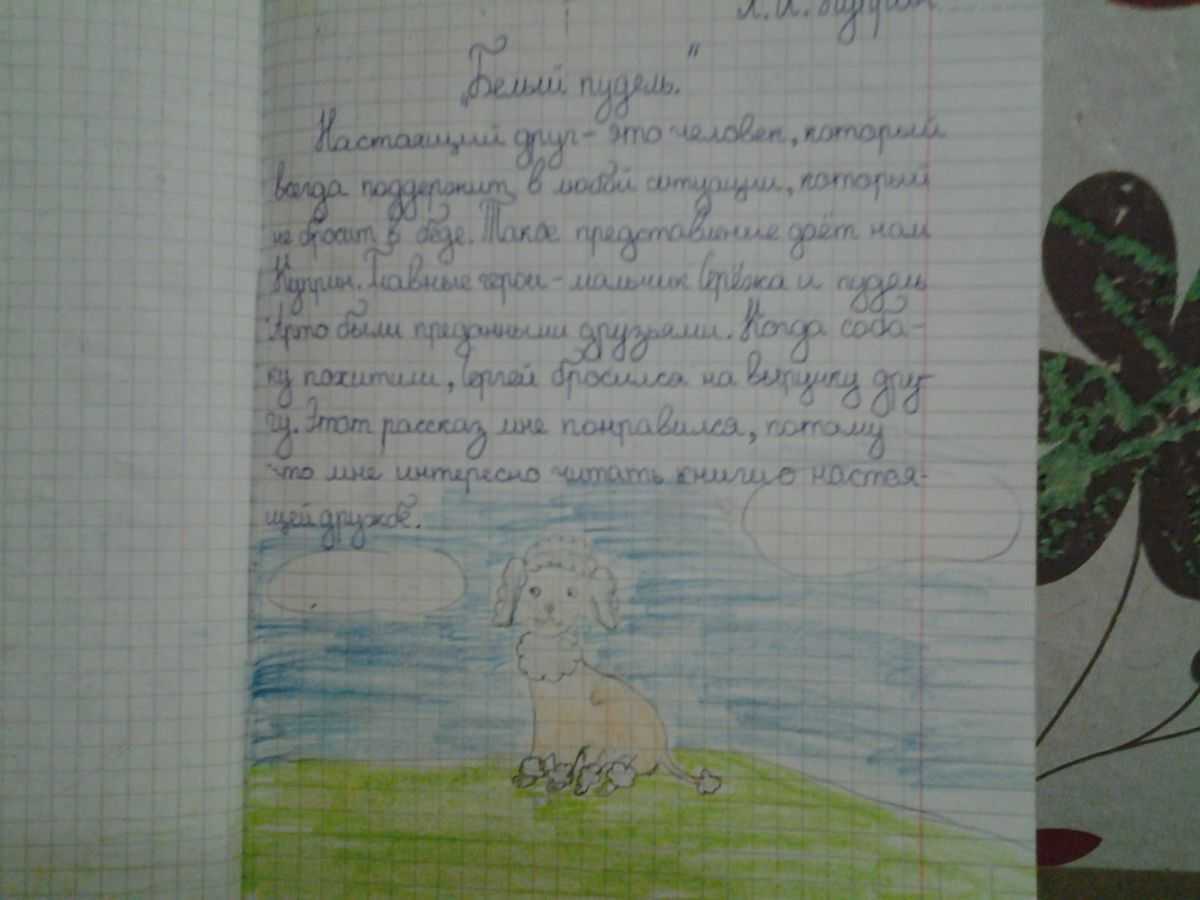 А. И. Куприн
„Белый пудель."
Настоящий друг - это человек, который
всегда поддержит в любой ситуации, который
не бросит в беде. Такое представление даёт нам
Куприн. Главные герои - мальчик Серёжа и пудель
Арто были преданными друзьями. Когда соба-
ку похитили, Сергей бросился на выручку дру-
гу. Этот рассказ мне понравился, потому
что мне интересно читать книги о настоя-
щей дружбе.